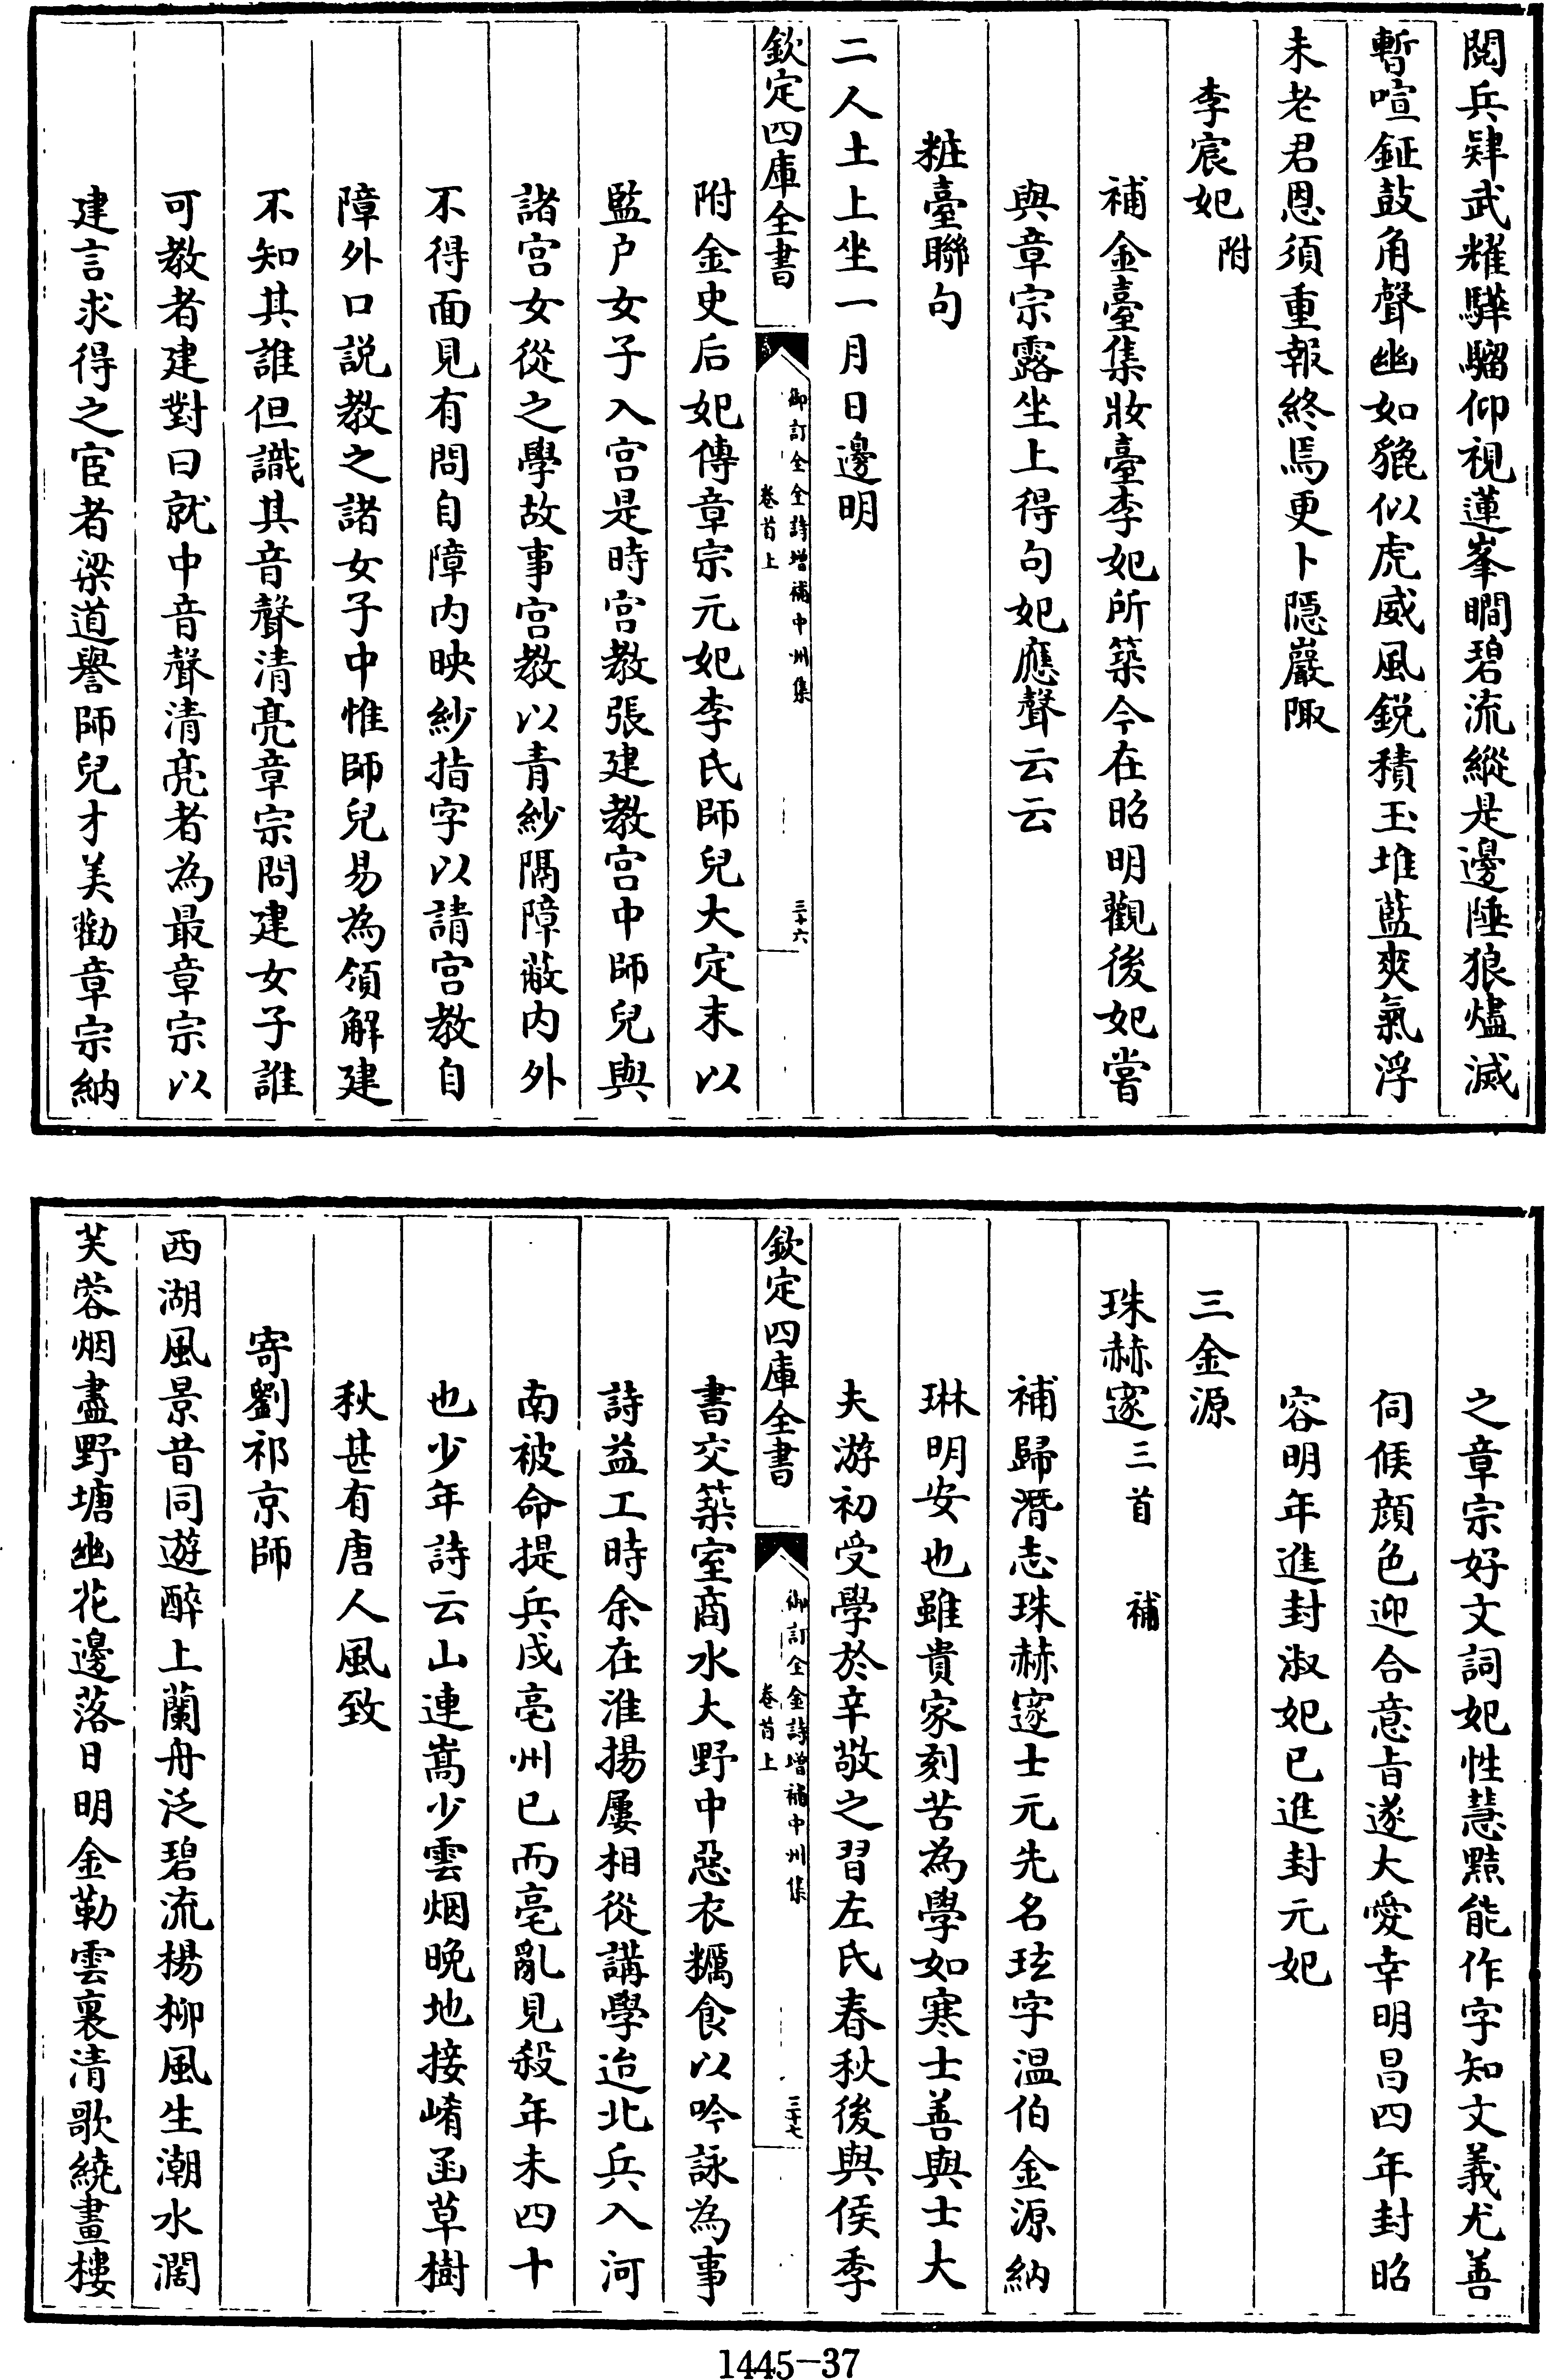 閲兵肄武耀驊騮仰視蓮峯瞷碧流縱是邊陲狼燼滅
暫喧鉦鼓角聲幽如貔似虎威風鋭積玉堆藍爽氣浮
未老君恩須重報終焉更卜隠巖陬
李宸妃附
補金臺集妝臺李妃所築今在昭明觀後妃嘗
與章宗露坐上得句妃應聲云云
粧臺聯句
二人土上坐一月日邊明
欽定四庫全書
御訂全金詩增補中州集
卷首上
三十六
附金史后妃傳章宗元妃李氏師兒大定末以
監户女子入宫是時宫教張建教宫中師兒與
諸宫女從之學故事宫教以青紗隔障蔽内外
不得面見有問自障内映紗指字以請宫教自
障外口説教之諸女子中惟師兒易為領解建
不知其誰但識其音聲清亮章宗問建女子誰
可教者建對曰就中音聲清亮者為最章宗以
建言求得之宦者梁道譽師兒才美勸章宗納
之章宗好文詞妃性慧黠能作字知文義尤善
伺候顔色迎合意㫖遂大愛幸明昌四年封昭
容明年進封淑妃已進封元妃
三金源
珠赫邃三首 補
補歸潛志珠赫邃士元先名玹字温伯金源納
琳明安也雖貴家刻苦為學如寒士善與士大
夫游初受學於辛敬之習左氏春秋後與侯季
欽定四庫全書
御訂全金詩增補中州集
卷首上
三十七
書交築室商水大野中惡衣糲食以吟詠為事
詩益工時余在淮揚屢相從講學迨北兵入河
南被命提兵戍亳州已而亳亂見殺年未四十
也少年詩云山連嵩少雲烟晚地接崤函草樹
秋甚有唐人風致
寄劉祁京師
西湖風景昔同遊醉上蘭舟泛碧流楊柳風生潮水濶
芙蓉烟盡野塘幽花邊落日明金勒雲裏清歌繞畫樓
1445—37